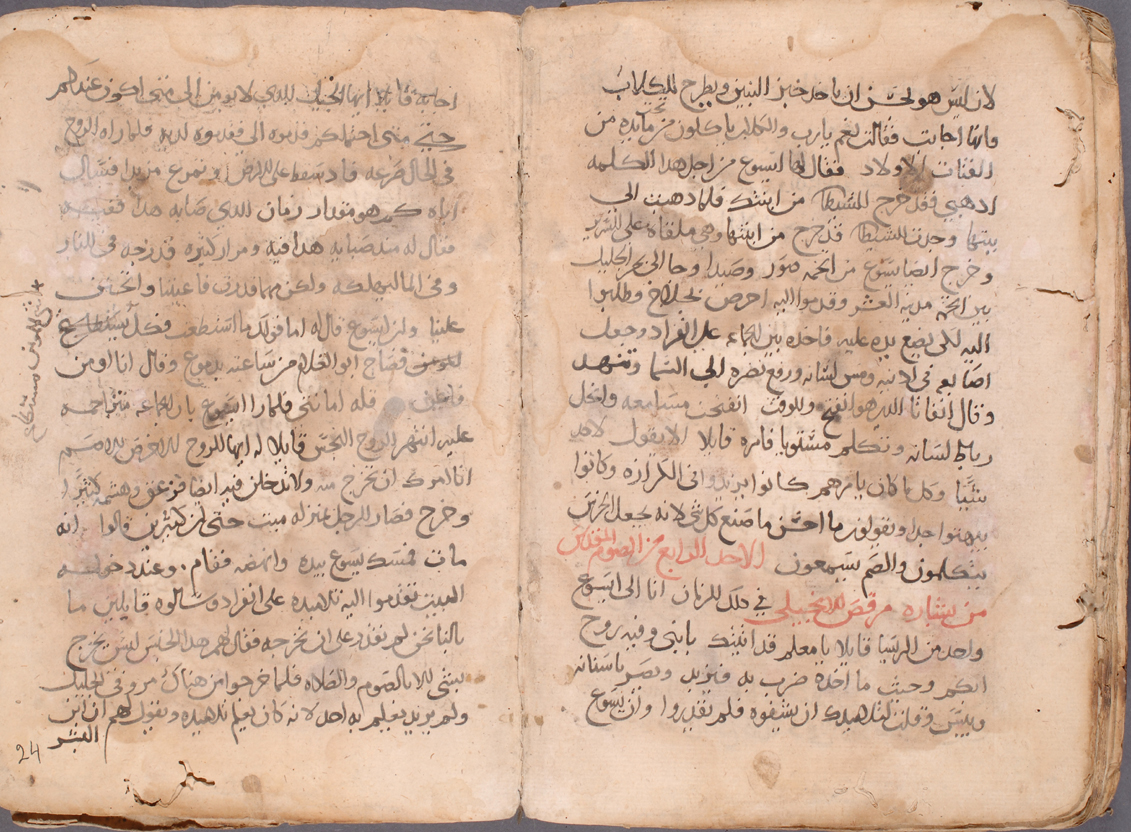 لان ليس هو بحسن ان ياخد خبز البنين ويطرح للكلاب
وانها اجابت فقالت نعم يارب والكلاب ياكلون من مايده من
الفتات الاولاد فقال لها ايسوع من اجل هدا الكلمه
ادهبي فقد خرج الشيطا من ابنتك فلما دهبت الى
بيتها وجدت الشيطا قد خرج من ابنتها وهي ملقاه على السرير
وخرج ايضا يسوع من تخمه صور وصيدا وجا الى بحر الجليل
بين تخمه مدينه العشر وقدموا اليه اخرص وطلبوا
اليه لكي يضع يده عليه فاخده بين الجماعه على انفراد وجعل
اصابعه في ادنيه ومس لسانه ورفع نظره الى السما وتنهد
وقال افاتا الدي هو انفتح وللوقت انفتحت مسامعه وانحل
رباط لسانه وتكلم مستويا فامره قايلا الا يقول لاحد
شيًا وكل ما كان يامرهم كانوا يزيدوا في الكرازه وكانوا
يبهتوا جدا ويقولون ما احسن ما صنع كل شي لانه يجعل الخرس
يتكلمون والصم يسمعون الاحد الرابع من الصوم المقدس
من بشاره مرقص الانجيلي في دلك الزمان اتا الى ايسوع
واحد من قايلا يا معلم قد اتيتك بابني وفيه روح
ابكم وحيث ما اخده ضرب به فيزبد ويصر باسنانه
وييبس وقلت لتلاميدك ان يشفوه فلم يقدروا وان يسوع
اجابه قايلا ايها الجيل الدي لا يومن الى متى اكون عندكم
حتى متى احتملكم قدموه الى فقدموه لديه فلما راه الروح
في الحال صرعه فاد سقط على الارض يتمرع مزبدا فسال
اباه كم هو مقدار زمان الدي صابه هدا
فقال له مند صبايه هدا فيه ومرار كتيره قد زجه في النار
وفي الما ليهلكه ولكن مهما قدرت فاعينا وتحنن
علينا وان ايسوع قال له اما قولك ما استطعت فكل يستطاع
للمومن فصاح ابو الغلام من ساعته بدموع وقال انا اومن
فاعين قله امانتي فلما راا ايسوع بان الجماعه
عليه انتهر الروح النجس قايلا له ايها الروح الاخرص الاصم
انا امرك ان تخرج منه ولا تدخل فيه ايضا فزعق وهشمه كتيرا
وخرج فصار الرجل بمنزله ميت حتى ان كتيرين قالوا انه
مات فمسك يسوع بيده وانهضه فقام وعند دخوله
البيت تقدموا اليه تلاميده على انفراد وسالوه قايلين ما
بالنا نحن لم نقدر على ان نخرجه فقال لهم هدا الجنس ليس يخرج
بشي الا بالصوم والصلاه فلما خرجوا من هناك مروا في الجليل
ولم يريد يعلم به احد لانه كان يعلم تلاميده ويقول لهم ان ابن
البشر
24
+ شي للمومن مستطاع